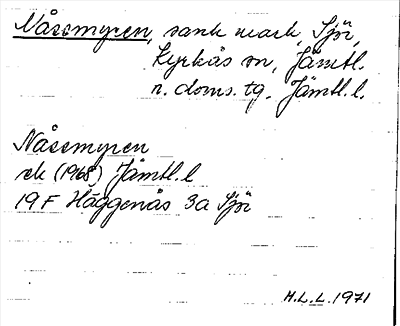 Nåssmyren, sank mark, Sjör,
Kyrkås sn, Jämtl.
n. doms. tg. Jämtl. l.
Nåssmyren
ek (1968) Jämtl. l
19 F Häggenås 3a Sjör
H.L.L. 1971